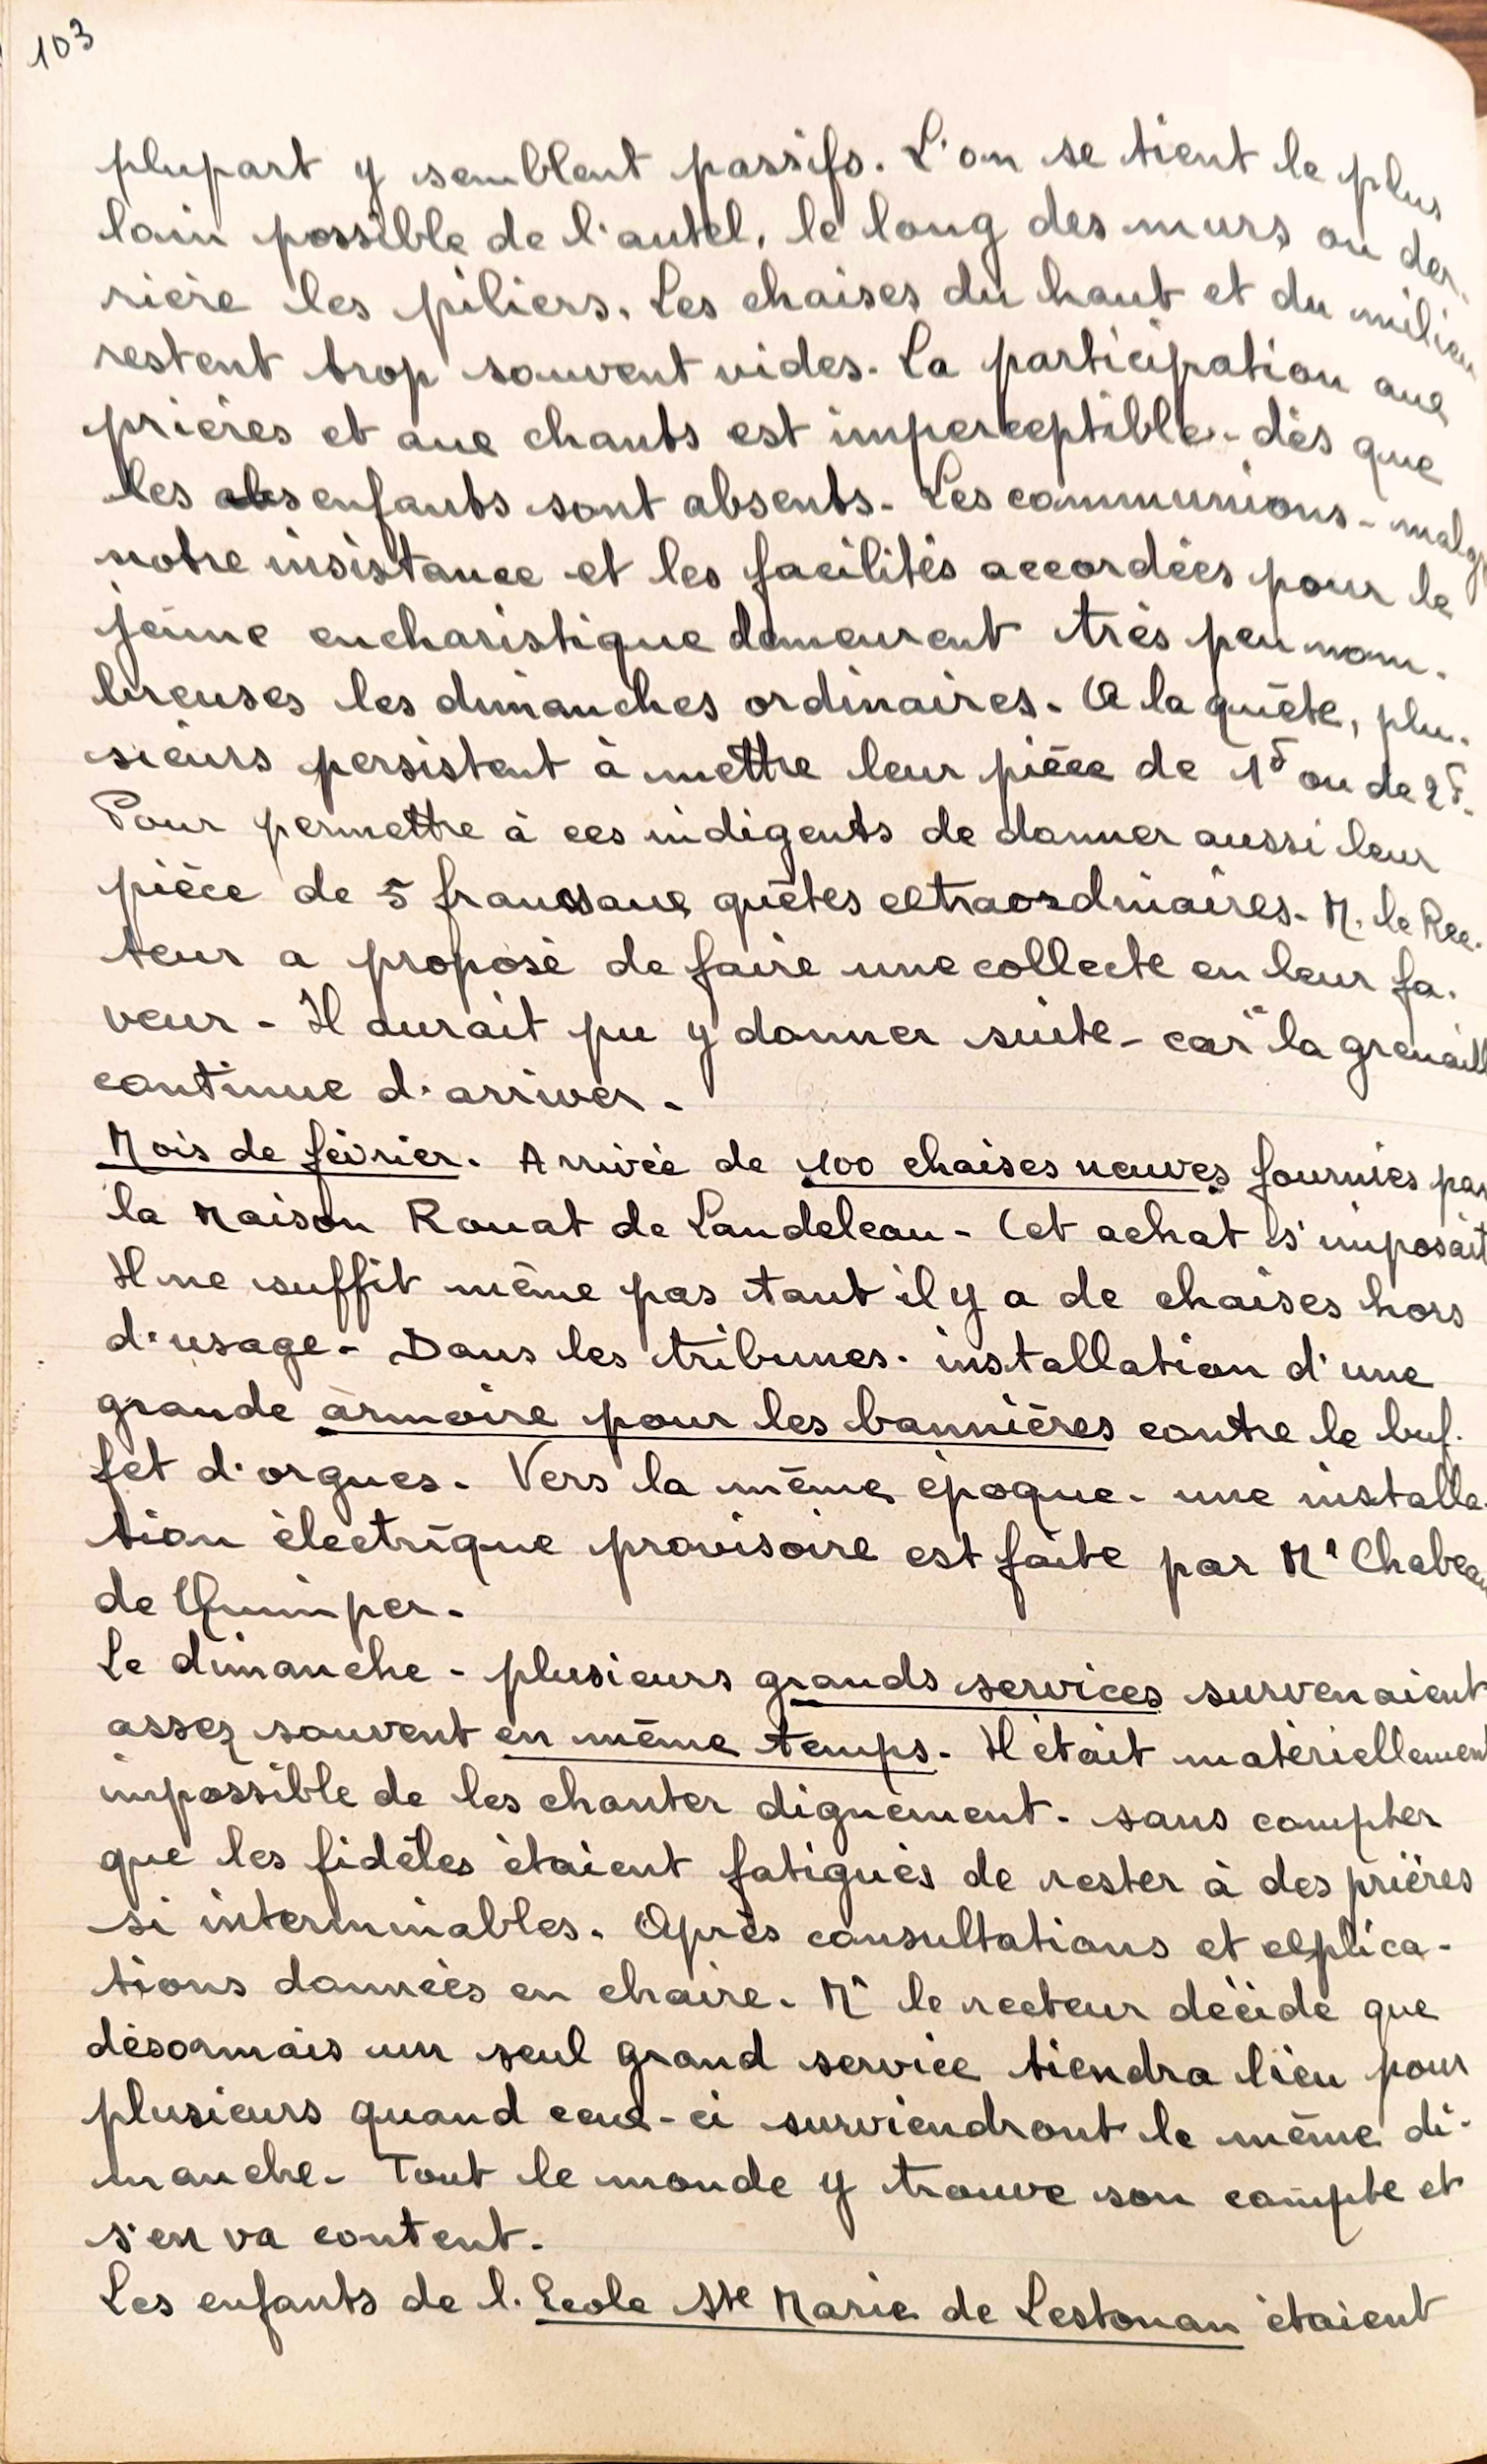 103
plupart y semblent passifs. L'on se tient le plus
loin possible de l'autel, le long des murs ou der-
rière les piliers. Les chaises du haut et du milieu
restent trop souvent vides. La participation aux
prières et aux chants est imperceptible - dès que
les enfants sont absents. Les communions - malgr
notre insistance et les facilités accordées pour le
jeûne eucharistique demeurent très peu nom-
breuses les dimanches ordinaires. A la quête, plu-
sieurs persistent à mettre leur pièce de 1F ou de 2F.
Pour permettre à ces indigents de donner aussi leur
pièce de 5 francs aux quêtes extraordinaires. M. le Rec-
teur a proposé de faire une collecte en leur fa-
veur - Il aurait pu y donner suite - car "la grenaill
continue d'arriver.
Mois de février. Arrivée de 100 chaises neuves fournies par
la Maison Rouat de Landeleau - Cet achat s'imposait
Il ne suffit même pas tant il y a de chaises hors
d'usage - Dans les tribunes - installation d'une
grande armoire pour les bannières contre le buf-
fet d'orgues. Vers la même époque - une installa-
tion électrique provisoire est faite par Mr Chabeau
de Quimper.
Le dimanche - plusieurs grands services survenaient
assez souvent en même temps. Il était matériellement
impossible de les chanter dignement - sans compter
que les fidèles étaient fatigués de rester à des prières
si interminables. Après consultations et explica-
tions données en chaire. Mr le recteur décide que
désormais un seul grand service tiendra lieu pour
plusieurs quand ceux-ci surviendront le même di-
manche - Tout le monde y trouve son compte et
s'en va content.
Les enfants de l'Ecole Ste Marie de Lestonan étaient